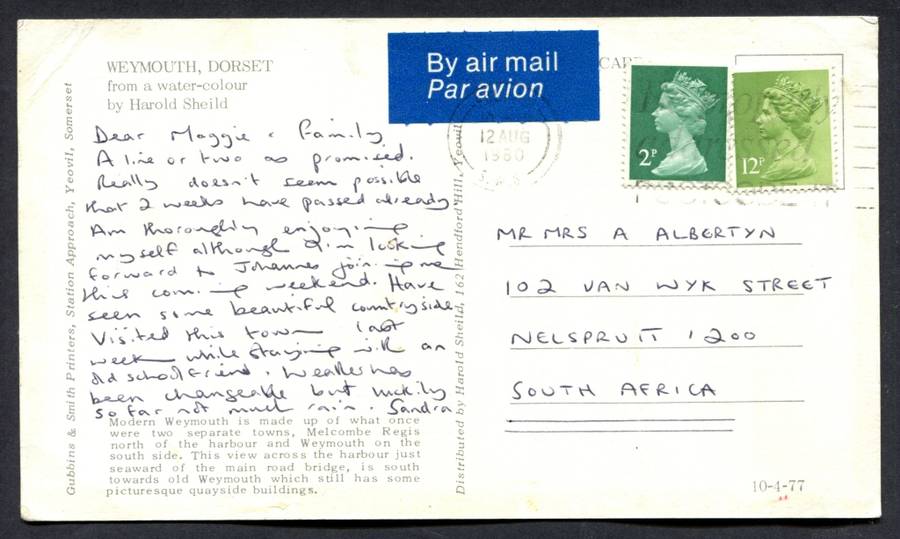 WEYMOUTH, DORSET
from a water-colour
by Harold Sheild
Dear Maggie & Family,
A line or two as promised.
Really doesn't seem possible
that 2 weeks have passed already.
Am thoroughly enjoying
myself although I'm looking
forward to Johannes joining me
this coming weekend. Have
seen some beautiful countryside.
Visited this town last
week while staying with an
old school friend. Weather has
been changeable but luckily
so far not much rain. Sandra
Modern Weymouth is made up of what once
were two separate towns, Melcombe Regis
north of the harbour and Weymouth on the
south side. This view across the harbour just
seaward of the main road bridge, is south
towards old Weymouth which still has some
picturesque quayside buildings.
Gubbins & Smith Printers, Station Approach, Yeovil, Somerset
Distributed by Harold Sheild, 162 Hendford Hill, Yeovil
By air mail
Par avion
CARD
12 AUG
1980
2P
12P
MR MRS A ALBERTYN
102 VAN WYK STREET
NELSPRUIT 1200
SOUTH AFRICA
10-4-77